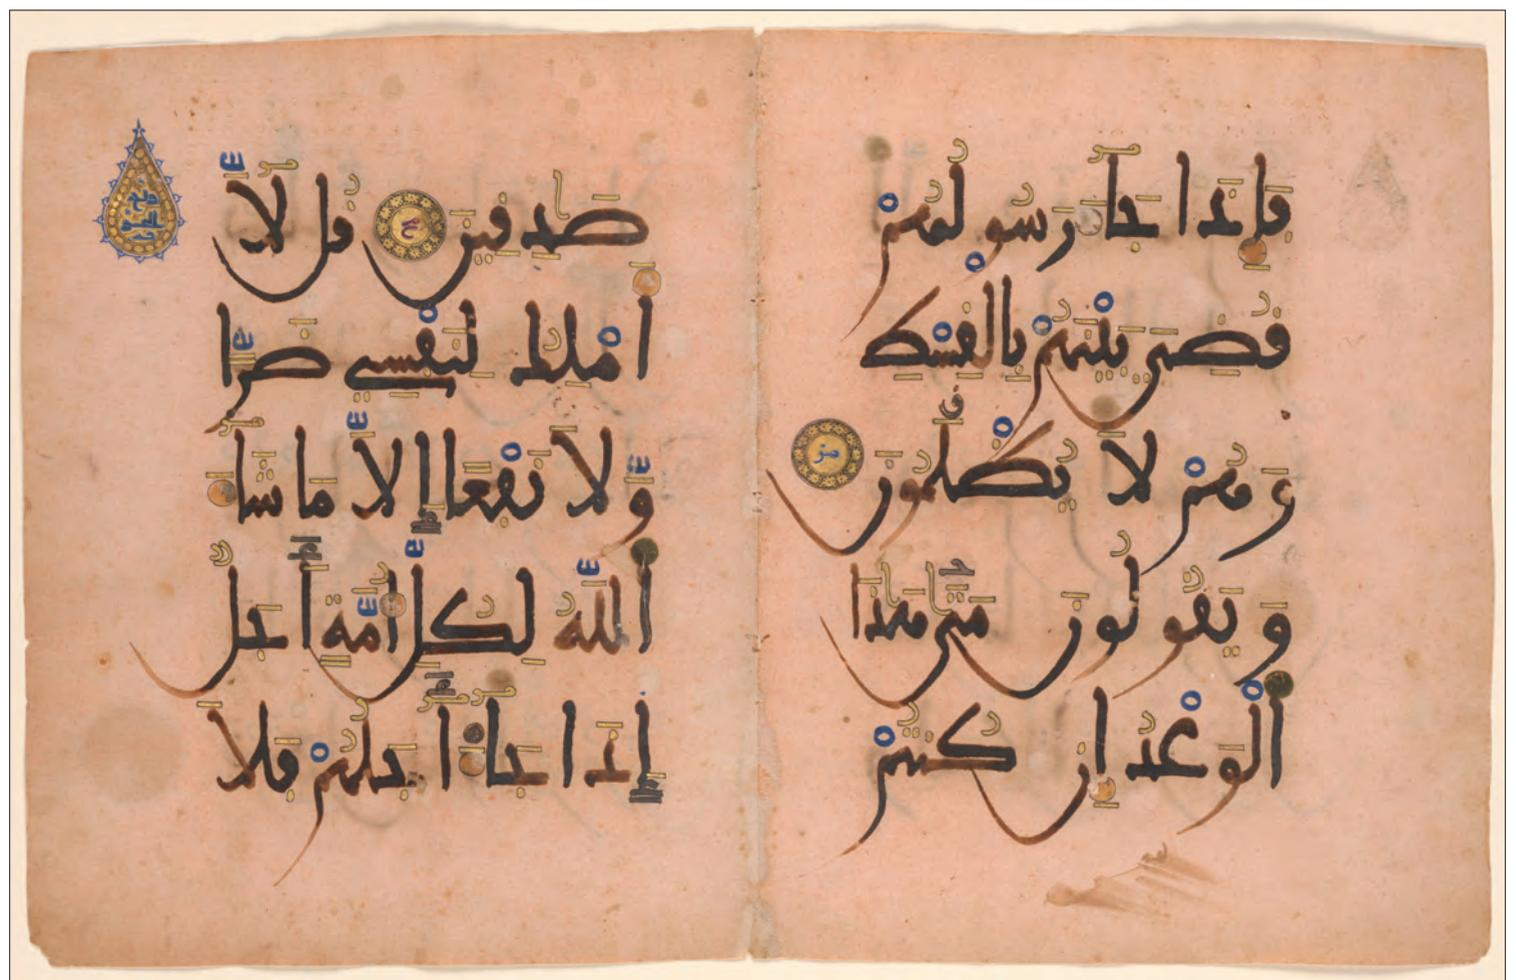 فَإِذَا جَآءَ رَسُولُهُمْ
قُضِيَ بَيْنَهُم بِالْقِسْطِ
وَهُمْ لَا يُظْلَمُونَ مز
وَيَقُولُونَ مَتَىٰ هَٰذَا
الْوَعْدُ إِن كُنتُمْ
صَٰدِقِينَ مح قُل لَّا
أَمْلِكُ لِنَفْسِي ضَرًّا
وَلَا نَفْعًا إِلَّا مَا شَآءَ
اللَّهُ لِكُلِّ أُمَّةٍ أَجَلٌ
إِذَا جَآءَ اجَلُهُمْ فَلَا